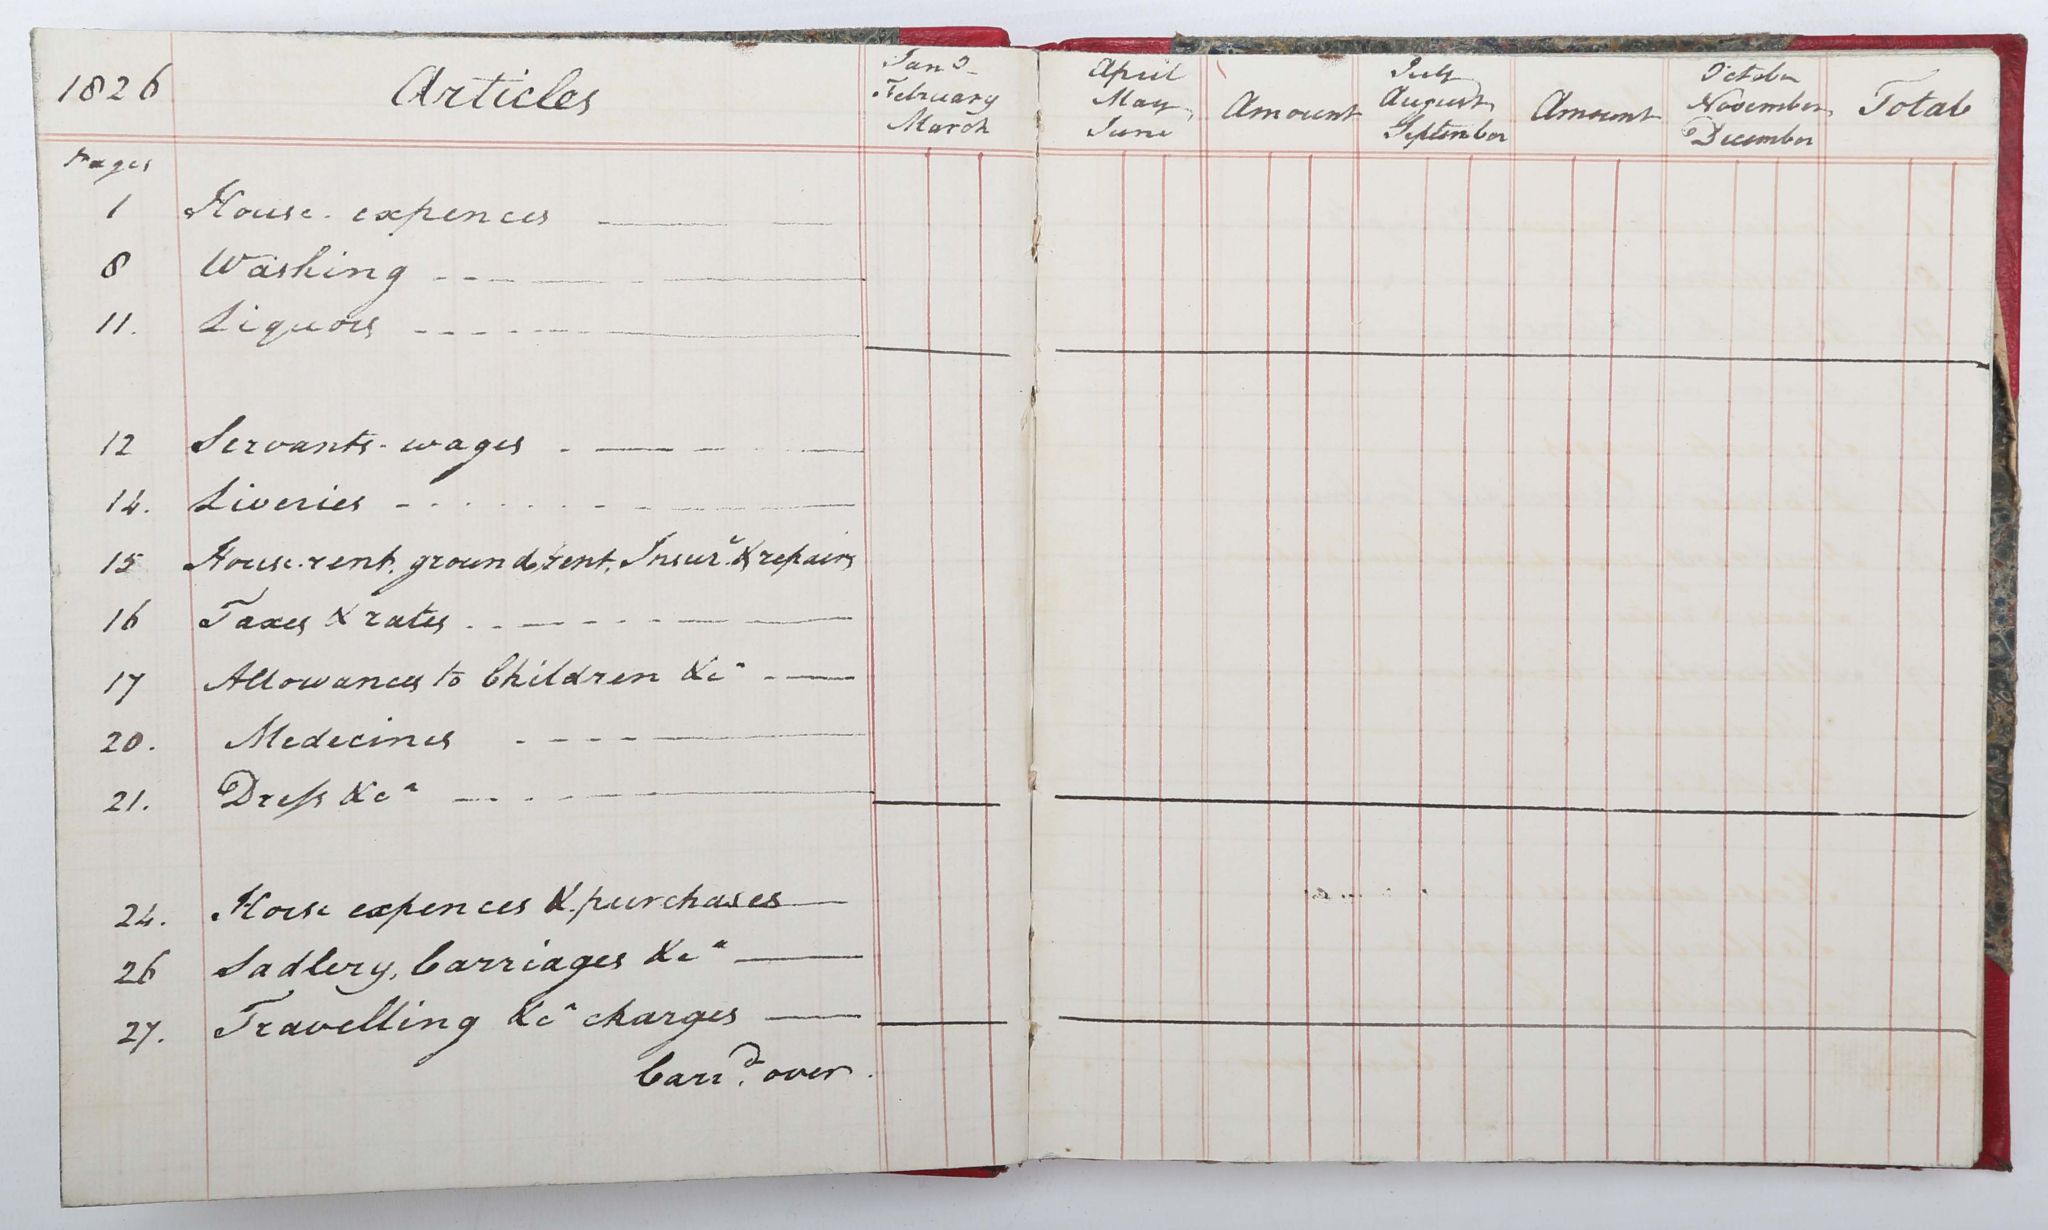 1826 Articles
Jan
February
March
April
May
June
Amount
July
August
September
Amount
October
November
December
Total
Pages
1 House expences
8 Washing
11. Liquors
12 Servants wages
14. Liveries
15 House rent, ground rent, Insur.ᵉ & repairs
16 Taxes & rates
17 Allowances to Children &cᵃ
20. Medecines
21. Dreſs &cᵃ
24. Horse expences & purchases
26 Sadlery, Carriages &cᵃ
27. Travelling &cᵃ charges
Carr.ᵈ over.